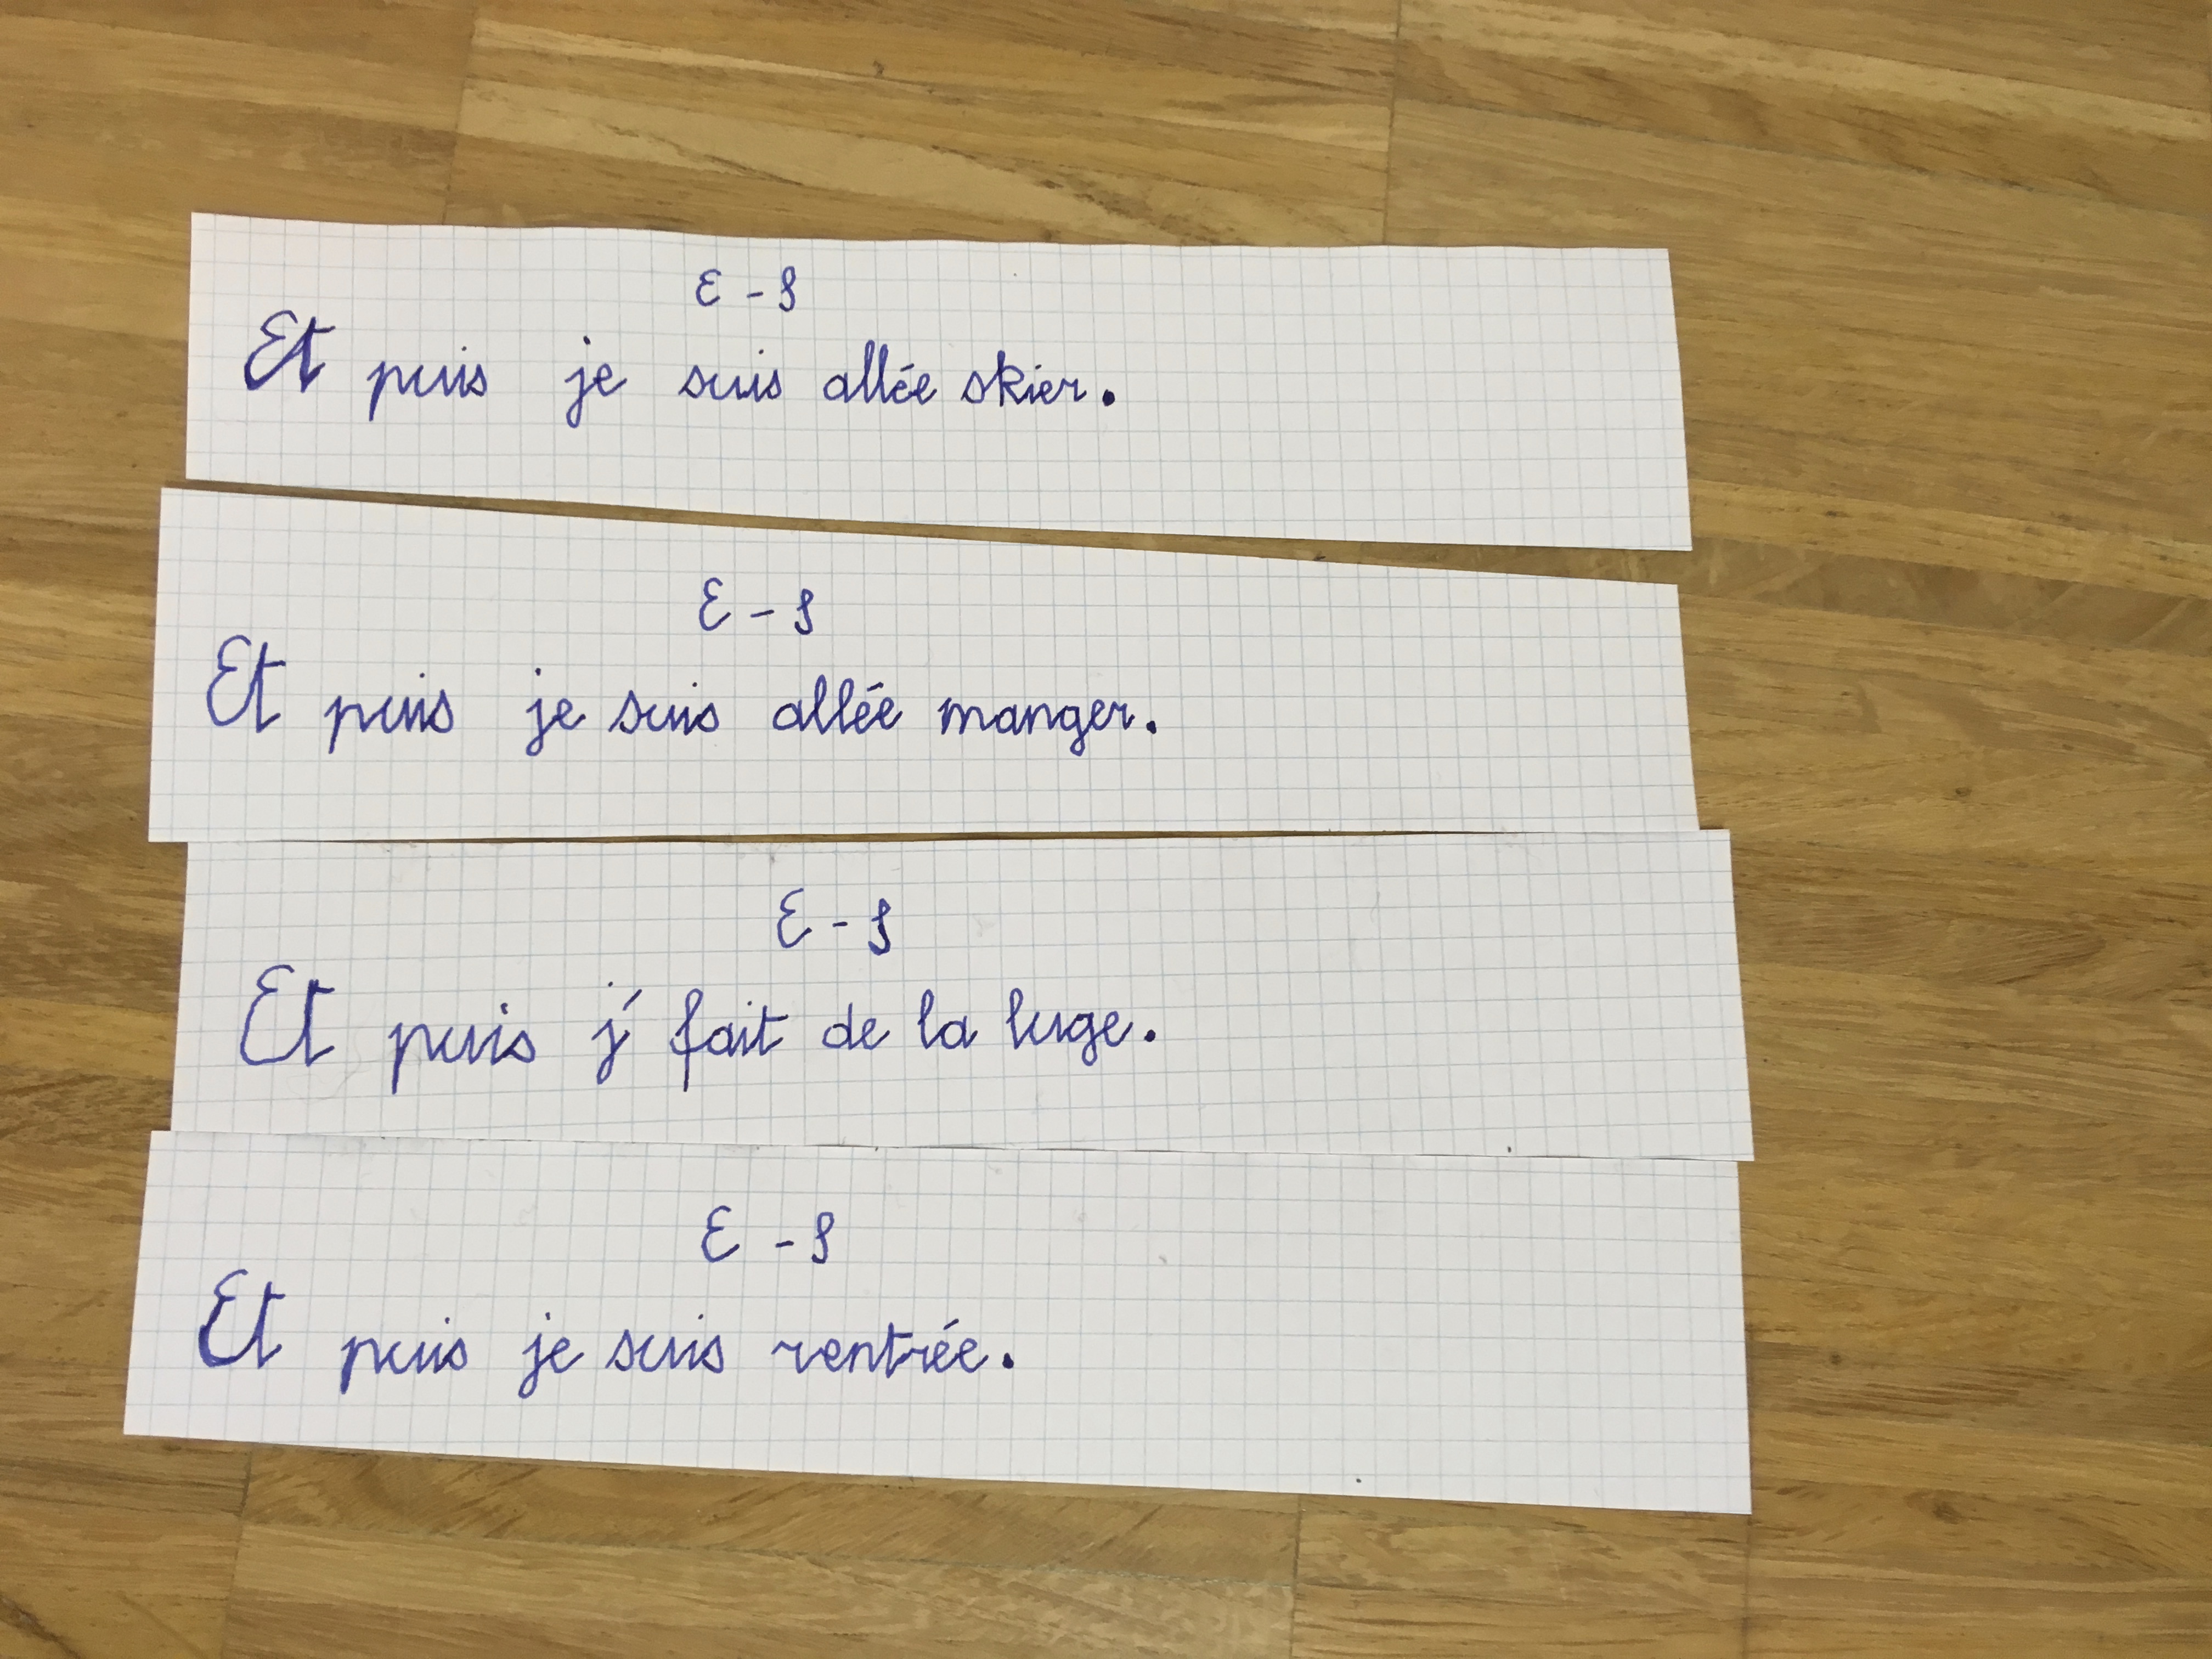 E - S
Et puis je suis allée skier.
E - S
Et puis je suis allée manger.
E - S
Et puis j' fait de la luge.
E - S
Et puis je suis rentrée.